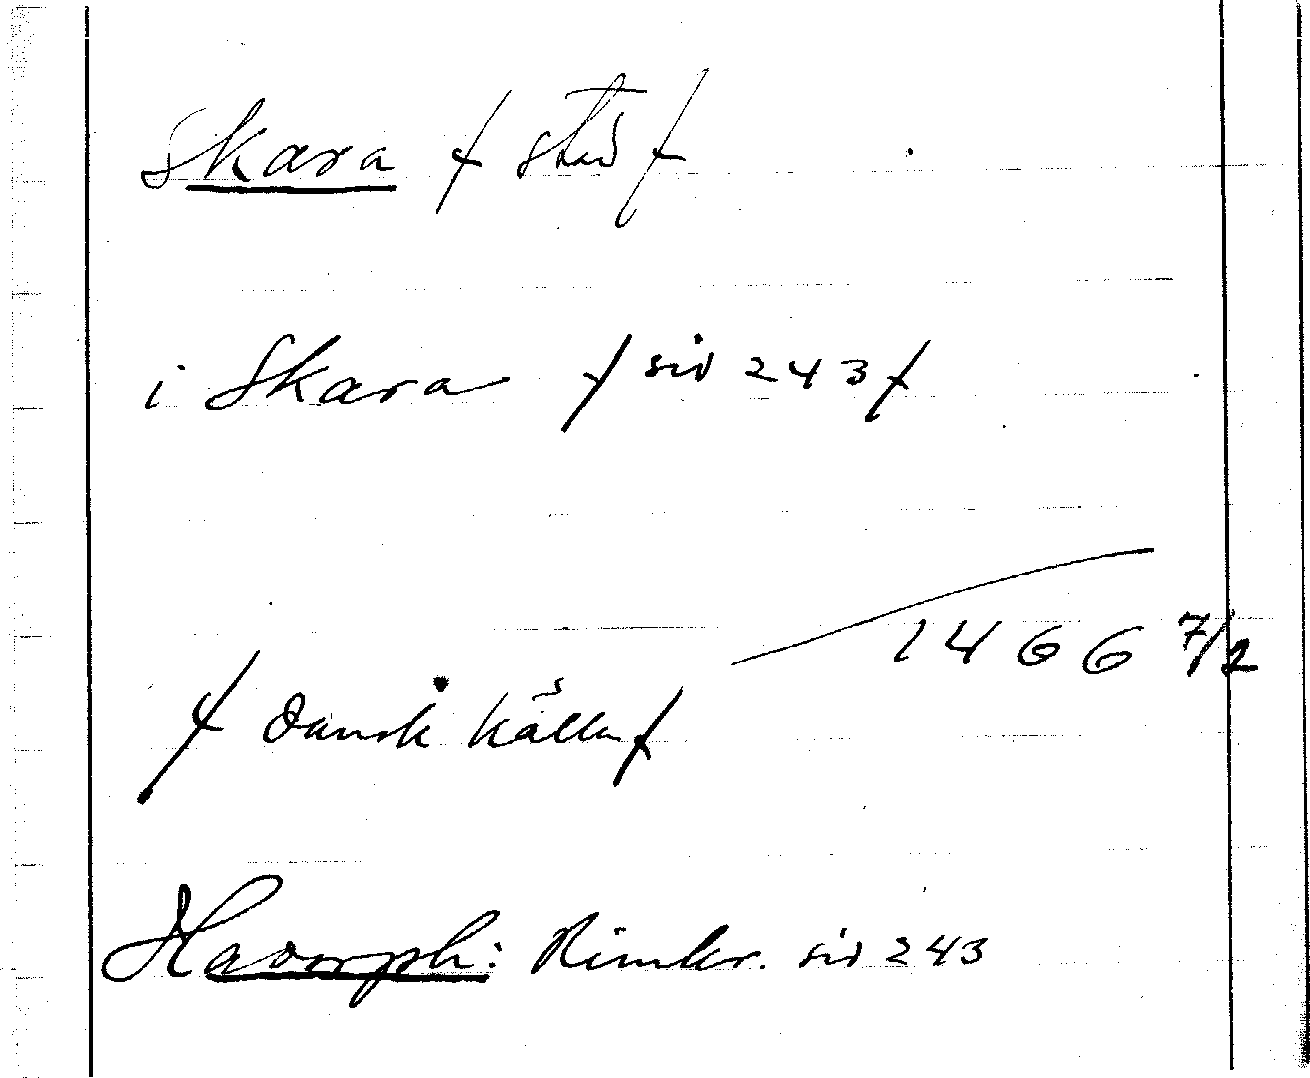 Skara / stad /
i Skara / sid 243 /
1466 7/2
/ Dansk källa /
Hadorph: Rimkr. sid 243